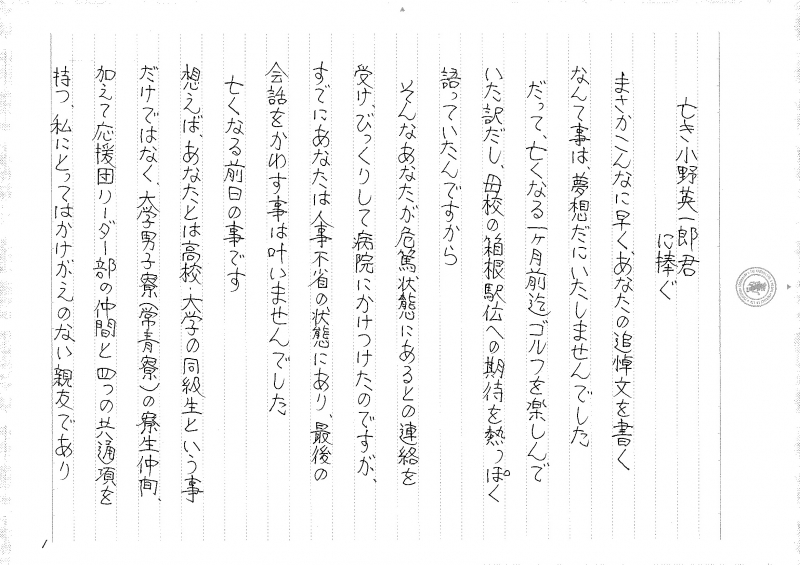 亡き小野英一郎君
に捧ぐ
まさかこんなに早く、あなたの追悼文を書く
なんて事は、夢想だにいたしませんでした
だって、亡くなる一ヶ月前迄ゴルフを楽しんで
いた訳だし、母校の箱根駅伝への期待を熱っぽく
語っていたんですから
そんなあなたが危篤状態にあるとの連絡を
受け、びっくりして病院にかけつけたのですが、
すでにあなたは人事不省の状態にあり、最後の
会話をかわす事は叶いませんでした
亡くなる前日の事です
想えば、あなたとは高校・大学の同級生という事
だけではなく、大学男子寮(常青寮)の寮生仲間、
加えて応援団リーダー部の仲間と四つの共通項を
持つ、私にとってはかけがえのない親友であり
1